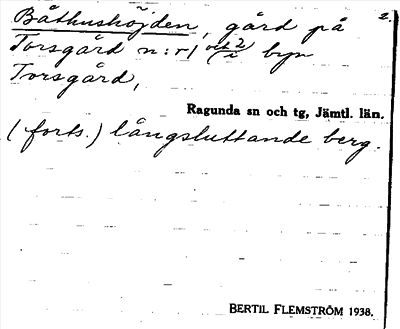 Båthushöjden, gård på 2.
Torsgård n:r 1 och 2 i byn
Torsgård,
Ragunda sn och tg, Jämtl. län.
(forts.) långsluttande berg.
BERTIL FLEMSTRÖM 1938.